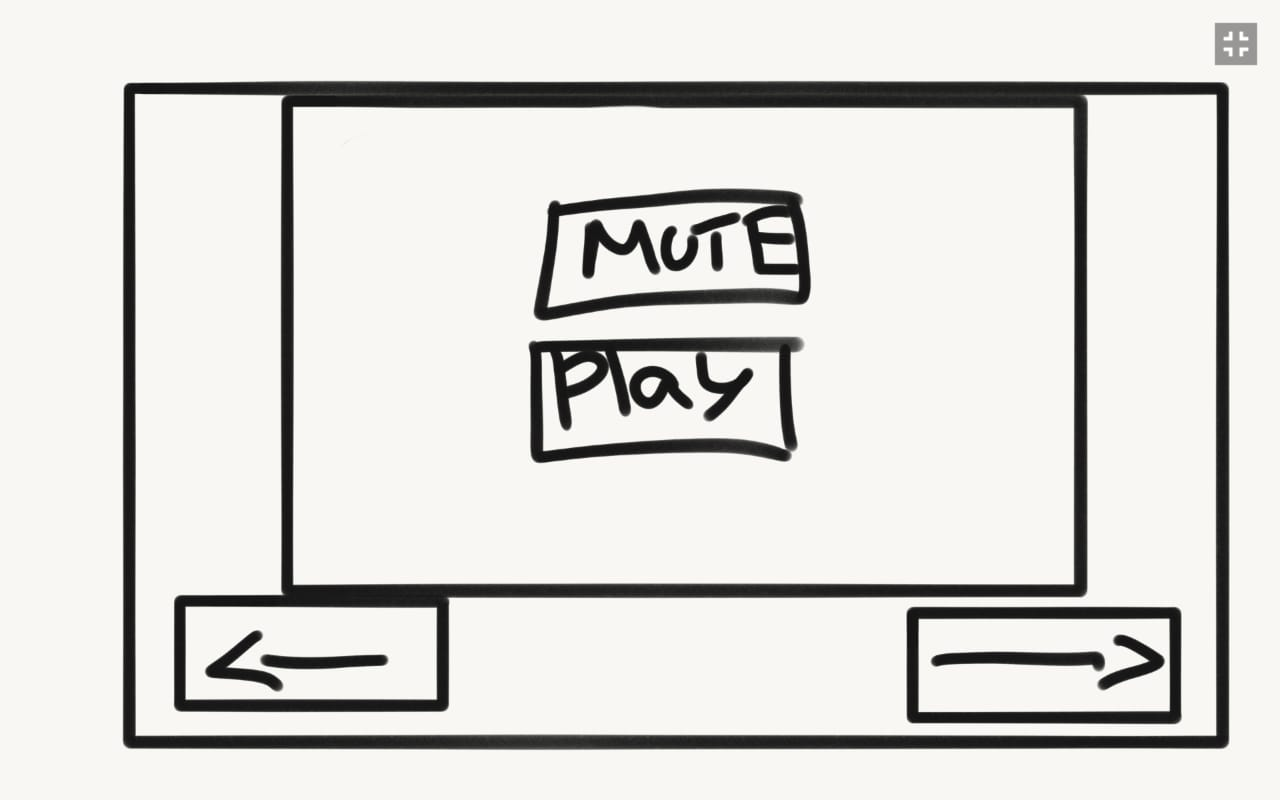 MUTE
Play